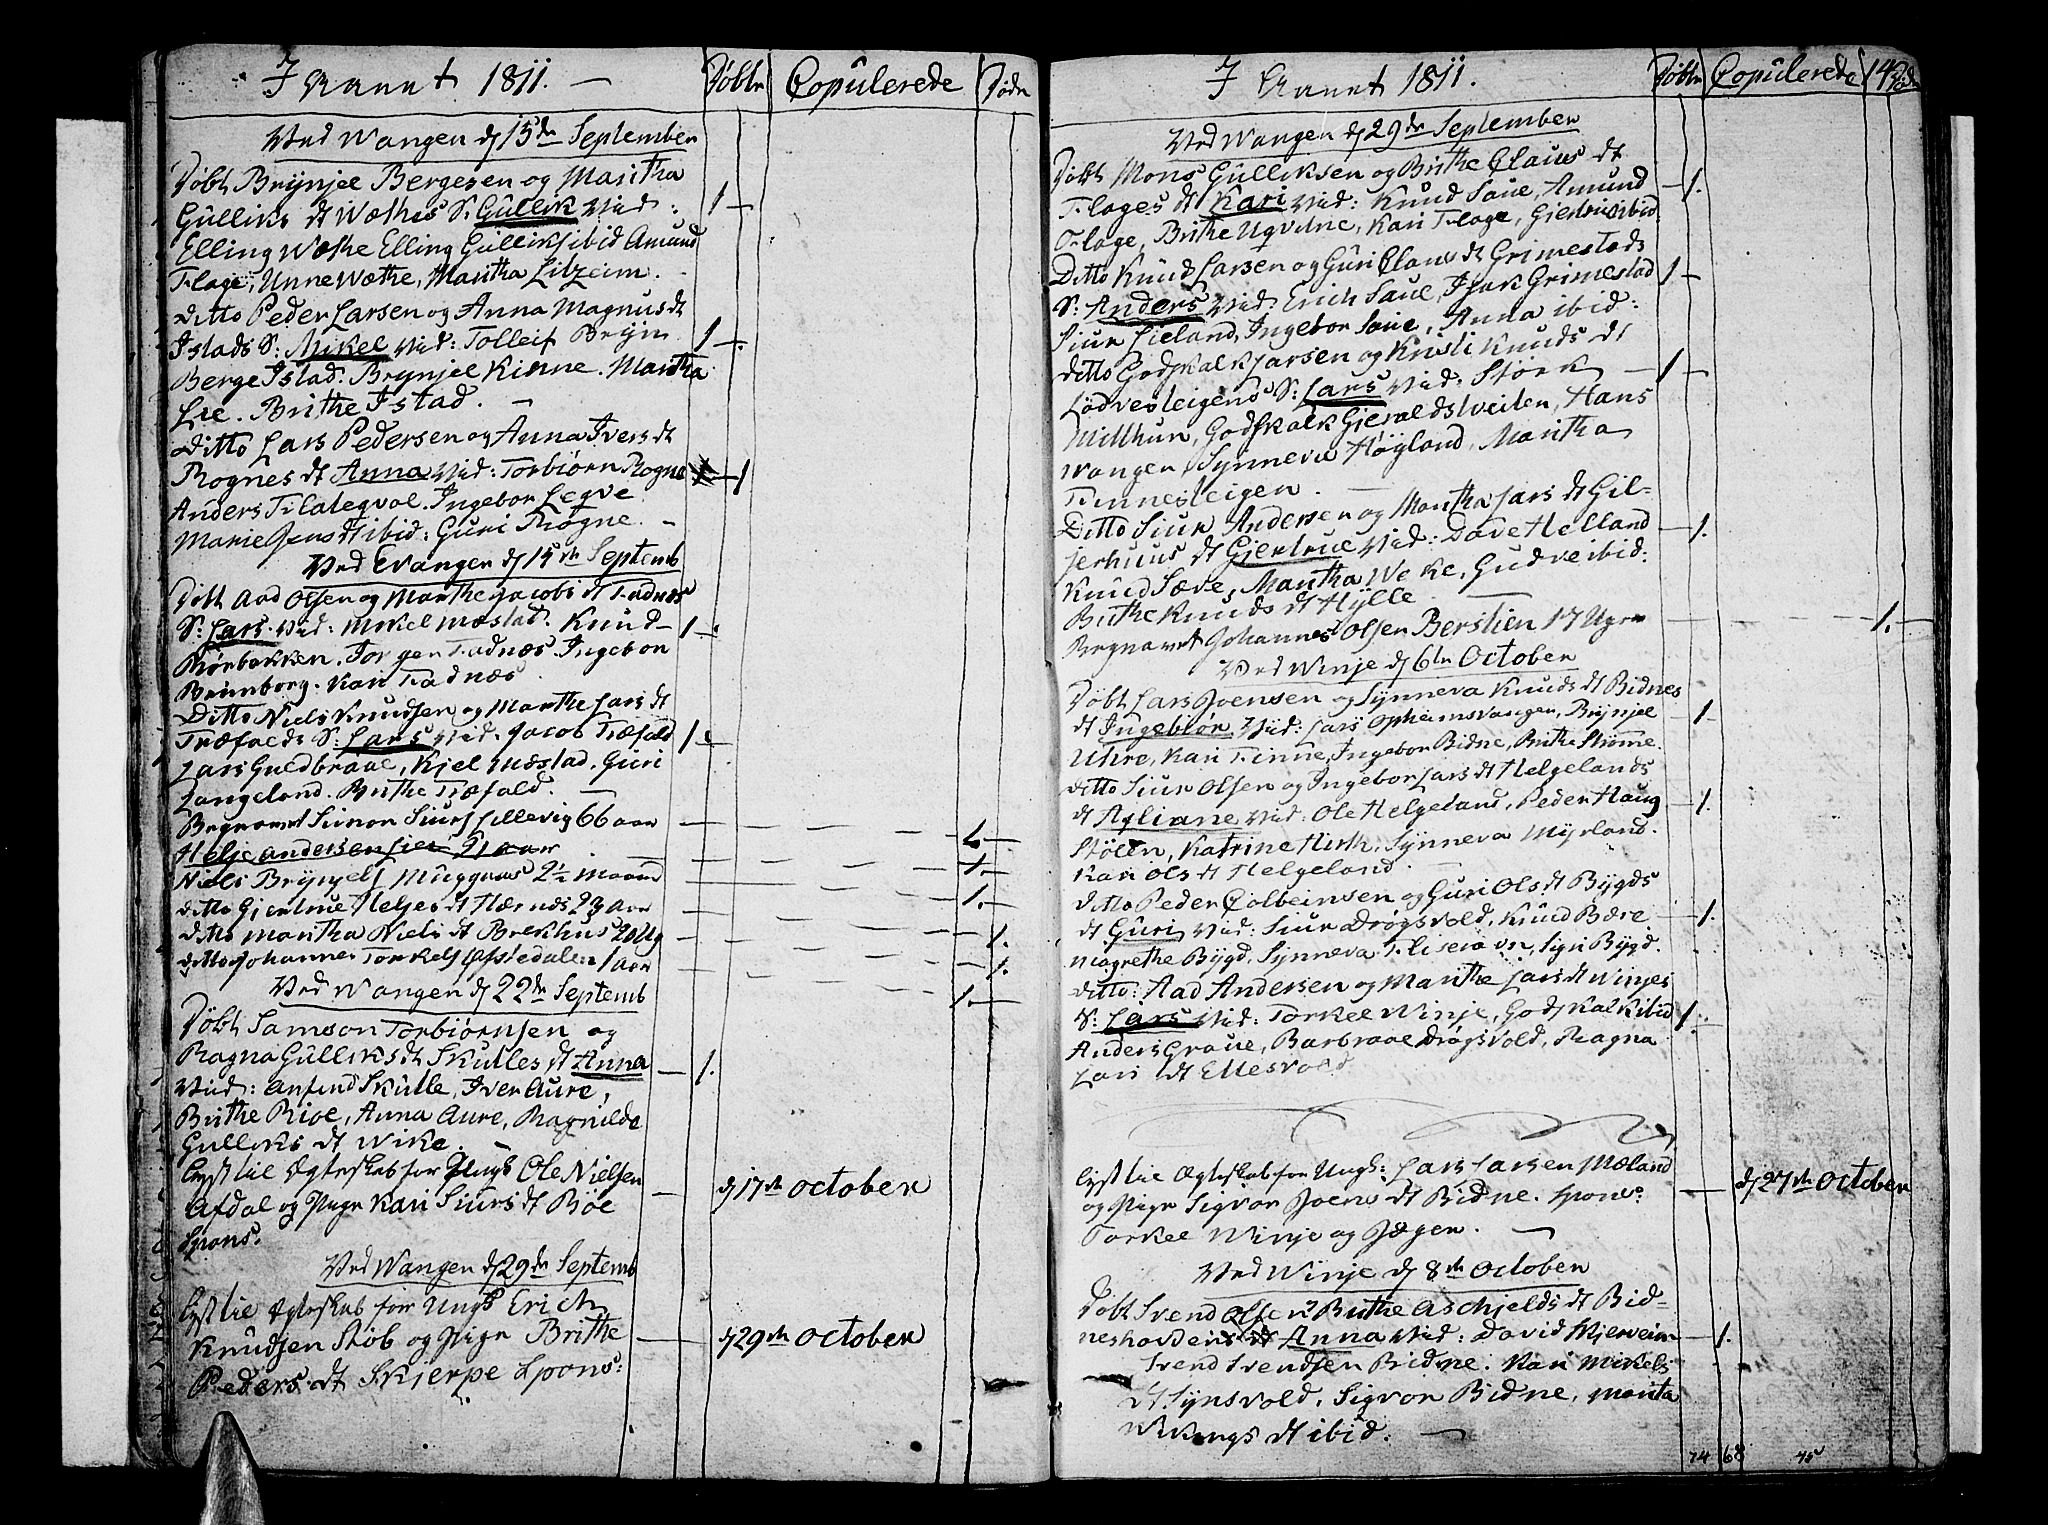 I Aaret 1811. — Døbte Copulerede Døde
Ved Wangen d 15de September
Døbt Brynjel Bergesen og Maritha
Gulliks dt Wæthes S: Gullik Vid: 1 —
Elling Wæthe Elling Gulliks ibid Amund
Flage, Unne Wæthe, Maritha Litzeim.
Ditto Peder Larsen og Anna Magnus dt
Istads S: Mikel Vid: Tolleif Bryn 1 —
Berge Istad. Brynjel Kinne. Maritha
Lie. Brithe Istad. —
Ditto Lars Pedersen og Anna Ivers dt
Rognes dt Anna Vid: Torbiørn Rogne 1
Anders Flateqval. Ingebor Leqve
Marie Jens dt ibid: Guri Rogne. —
Ved Evangen d 15de Septemb
Døbt Aad Olsen og Marthe Jacobs dt Fadnes
S: Lars. Vid: Mikel Mæstad. Knud 1 —
Rørbakken. Jørgen Fadnæs. Ingebor
Brunborg. Kari Fadnæs.
Ditto Niels Knudsen og Marthe Lars dt
Træfalds S: Lars Vid. Jacob Træfald 1 —
Lars Guldbraae, Kjel Mæstad. Guri
Langeland. Brithe Træfald. —
Begravet Simon Siurs Lillevig 66 aar 1 —
Helje Andersen 91 aar 1 —
Niels Brynjels Muggaas 2½ maaned 1. —
Ditto Gjertrue Heljes dt Hærnes 23 aar 1.
Ditto Maritha Niels dt Brekhus 20 Ug 1.
Ditto Johannes Torkels Øfstedalen 1 aar 1. —
Ved Wangen d 22de Septemb
Døbt Samson Torbiørnsen og
Ragna Gulliks dt Skulles dt Anna — 1.
Vid: Anfind Skulle, Iver Aure,
Brithe Rioe, Anna Aure, Ragnilde
Gulliks dt Wike. —
Lyst til Ægteskab for Ungk Ole Nielsen
Afdal og Pige Kari Siurs dt Bøe — d 17de October
Spons.
Ved Wangen d 29de Septemb
Lyst til Ægteskab for Ungk Erich
Knudsen Støb og Pige Brithe — d 29de October
Peders dt Skjerpe Spons:
I Aaret 1811. Døbte Copulerede 14 Døde
Ved Wangen d 29de September
Døbt Mons Gulliksen og Brithe Claus dt
Flages dt Kari Vid: Knud Saue, Amund — 1.
Flage, Brithe Ugvine, Kari Flage, Giertrue ibid
Ditto Knud Larsen og Guri Claus dt Grimestads
S: Anders Vid Erich Saue, Isak Grimestad 1 —
Siur Lieland, Ingebor Saue, Anna ibid:
Ditto Godskalk Larsen og Kristi Knuds dt
Lødvesleigens S: Lars Vid: Størk — 1 —
Millhun, Godskalk Gieraldstveiten, Hans
Wangen, Synneva Høgland, Maritha
Finnesleigen. —
Ditto Siur Andersen og Maritha Lars dt Gil-
jerhuus dt Gjertrue Vid: Dave Helland — 1.
Knud Sæve, Maritha Weke, Gudve ibid:
Brithe Knuds dt Hylle —
Begravet Johannes Olsen Berstien 17 Uger — 1. —
Ved Winje d 6te October
Døbt Lars Joensen og Synneva Knuds dt Bidnes
dt Ingebiør Vid: Lars Opheimsvangen, Brynjel — 1 —
Uhre, Kari Finne, Ingebor Bidne, Brithe Strømme.
Ditto Siur Olsen og Ingebor Lars dt Helgelands
dt Agliane Vid: Ole Helgeland, Peder Haug — 1.
Støten, Katrine Hirth, Synneva Myrland.
Kari Ols dt Helgeland. —
Ditto Peder Colbeinsen og Guri Ols dt Bygds
dt Guri Vid: Siur Drøgsvold, Knud Bære — 1.
Magrethe Bygd, Synneva, Sigri Bygd.
Ditto: Aad Andersen og Marithe Lars dt Winjes
S: Lars Vid: Torkel Winje, Godskalk ibid 1.
Anders Graue, Barbraae Drøgsvold, Ragna
Lars dt Ellesvold
Lyst til Ægteskab for Ungk: Lars Larsen Mæland
og Pige Sigvor Joens dt Bidne. Spons: — d 27de October
Torkel Winje og Jægen. —
Ved Winje d 8de October
Døbt Svend Olsen Brithe Aschjelds dt Bid-
neshovdens dt Anna Vid: David Hierveim — 1.
Svend Svendsen Bidne. Kari Mikels
dt Synsvold, Sigvor Bidne, Marita
Vikings dt ibid. —
74 68 75